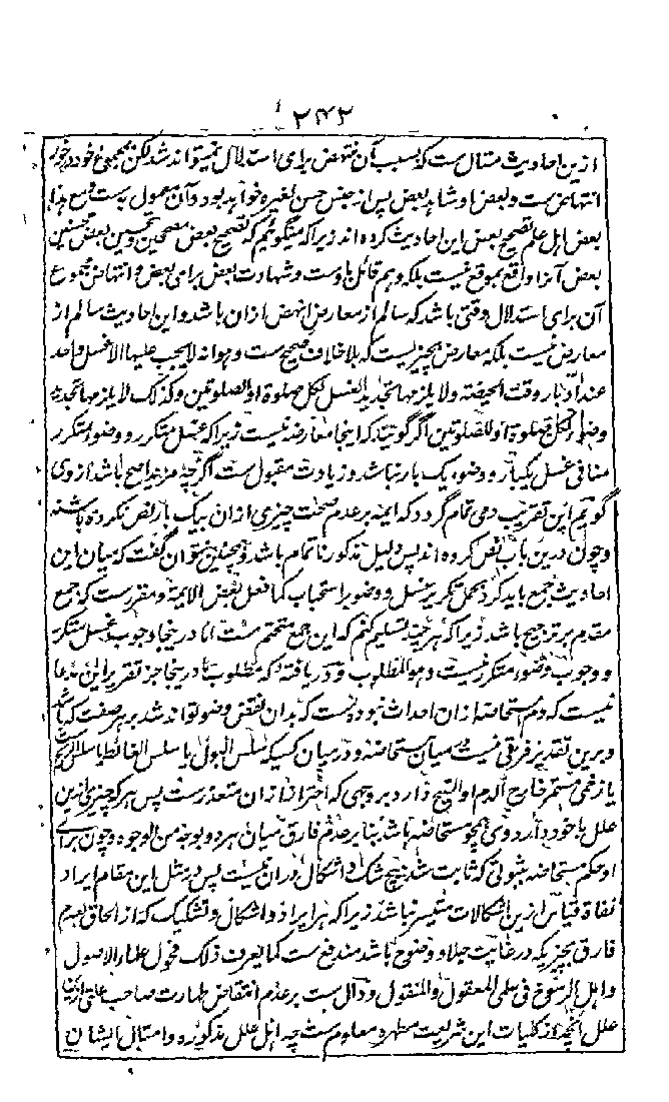 ۲۴۲
ازین احادیث مثال ست که بسبب آن منتهض برای استدلال نمیتواند شد لکن مجموع خود درخور
انتهاض ست و بعض او شاهد بعض پس از جنس حسن لغیره خواهد بود و آن معمول به ست و مع هذا
بعض اهل علم تصحیح بعض این احادیث کرده اند زیرا که میگوئیم که تصحیح بعض مصححین و تحسین بعض محسنین
بعض آنرا واقع بموقع نیست بلکه وهم قائل باوست و شهادت بعض برای بعض و انتهاض مجموع
آن برای استدلال وقتی باشد که سالم از معارض انهض ازان باشد و این احادیث سالم از
معارض نیست بلکه معارض بچیزیست که بلاخلاف صحیح ست و هو انه لا یجب علیها الا غسل واحد
عند ادبار وقت الحیضة ولا یلزمها تجدید الغسل لکل صلوة او للصلوتین وکذلک لا یلزمها تجدید
وضوء لکل صلوة او للصلوتین اگر گوئید که اینجا معارضه نیست زیرا که غسل متکرر و وضوء متکرر
منافی غسل یکبار و وضوء یک بار نباشد و زیادت مقبول ست اگرچه مزید اصح باشد از وی
گوئیم این تقریب دمی تمام گردد که ایمه بر عدم صحت چیزی ازان بیک بار نص نکرده باشند
و چون درین باب نص کرده اند پس دلیل مذکور ناتمام باشد و همچنین نتوان گفت که میان این
احادیث جمع باید کرد بحمل تکریر غسل و وضو بر استحباب کما فعل بعض الایمة و مقررست که جمع
مقدم بر ترجیح باشد زیرا که هر چند تسلیم کنیم که این جمع متحتم ست اما درینجا وجوب غسل متکرر
و وجوب وضوء متکرر نیست و هو المطلوب و دریافته که مطلوب ما درینجا جز تقریر این مدعا
نیست که دم مستحاضه ازان احداث نبوده ست که بدان نقض وضو تواند شد بر هر صفت که باشد
و برین تقدیر فرقی نیست در میان مستحاضه و درمیان کسیکه سلس البول یا سلس الغائط یا سلس الریح
یا زخمی مستمر خارج الدم او القیح دارد بر وجهی که احتراز ازان متعذر ست پس هر که چیزی ازین
علل با خود دارد وی همچو مستحاضه باشد بنا بر عدم فارق میان هر دو بوجه من الوجوه و چون برای
او حکم مستحاضه بثبوتی که ثابت شد هیچ شک و اشکال دران نیست پس در مثل این مقام ایراد
نفاة قیاس ازین اشکالات متیسر نباشد زیرا که هر ایراد و اشکال و تشکیک که از الحاق بعدم
فارق بچیزیکه در غایت جلا و وضوح باشد مندفع ست کما یعرف ذلک فحول علماء الاصول
و اهل الرسوخ فی علمی المعقول والمنقول و دال ست بر عدم انتقاض طهارت صاحب علتی ازین
علل آنچه از کلیات این شریعت مطهره معلوم ست چه اهل علل مذکوره و امثال ایشان